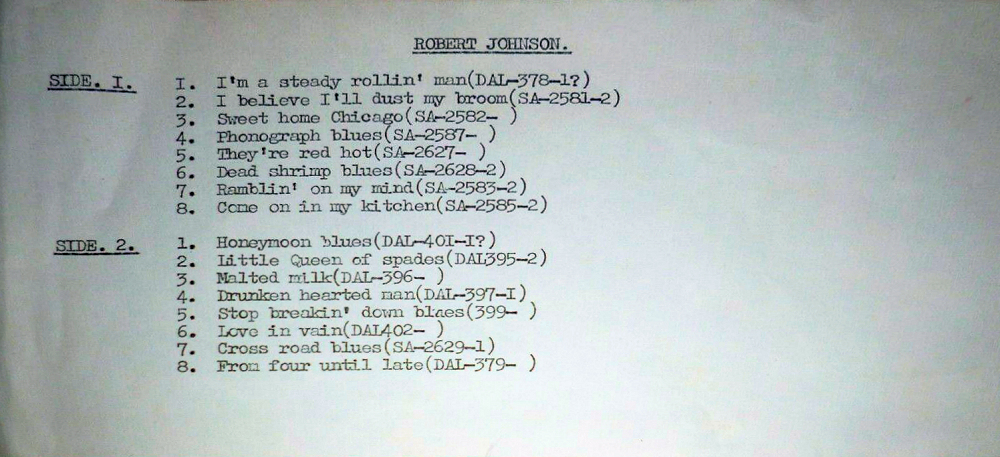 ROBERT JOHNSON.
SIDE. I. I. I'm a steady rollin' man(DAL-378-1?)
2. I believe I'll dust my broom(SA-2581-2)
3. Sweet home Chicago(SA-2582- )
4. Phonograph blues(SA-2587- )
5. They're red hot(SA-2627- )
6. Dead shrimp blues(SA-2628-2)
7. Ramblin' on my mind(SA-2583-2)
8. Come on in my kitchen(SA-2585-2)
SIDE. 2. 1. Honeymoon blues(DAL-40I-I?)
2. Little Queen of spades(DAL395-2)
3. Malted milk(DAL-396- )
4. Drunken hearted man(DAL-397-I)
5. Stop breakin' down blaes(399- )
6. Love in vain(DAL402- )
7. Cross road blues(SA-2629-1)
8. From four until late(DAL-379- )